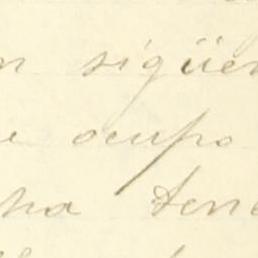 n sigüen
e ocupo
ha tene